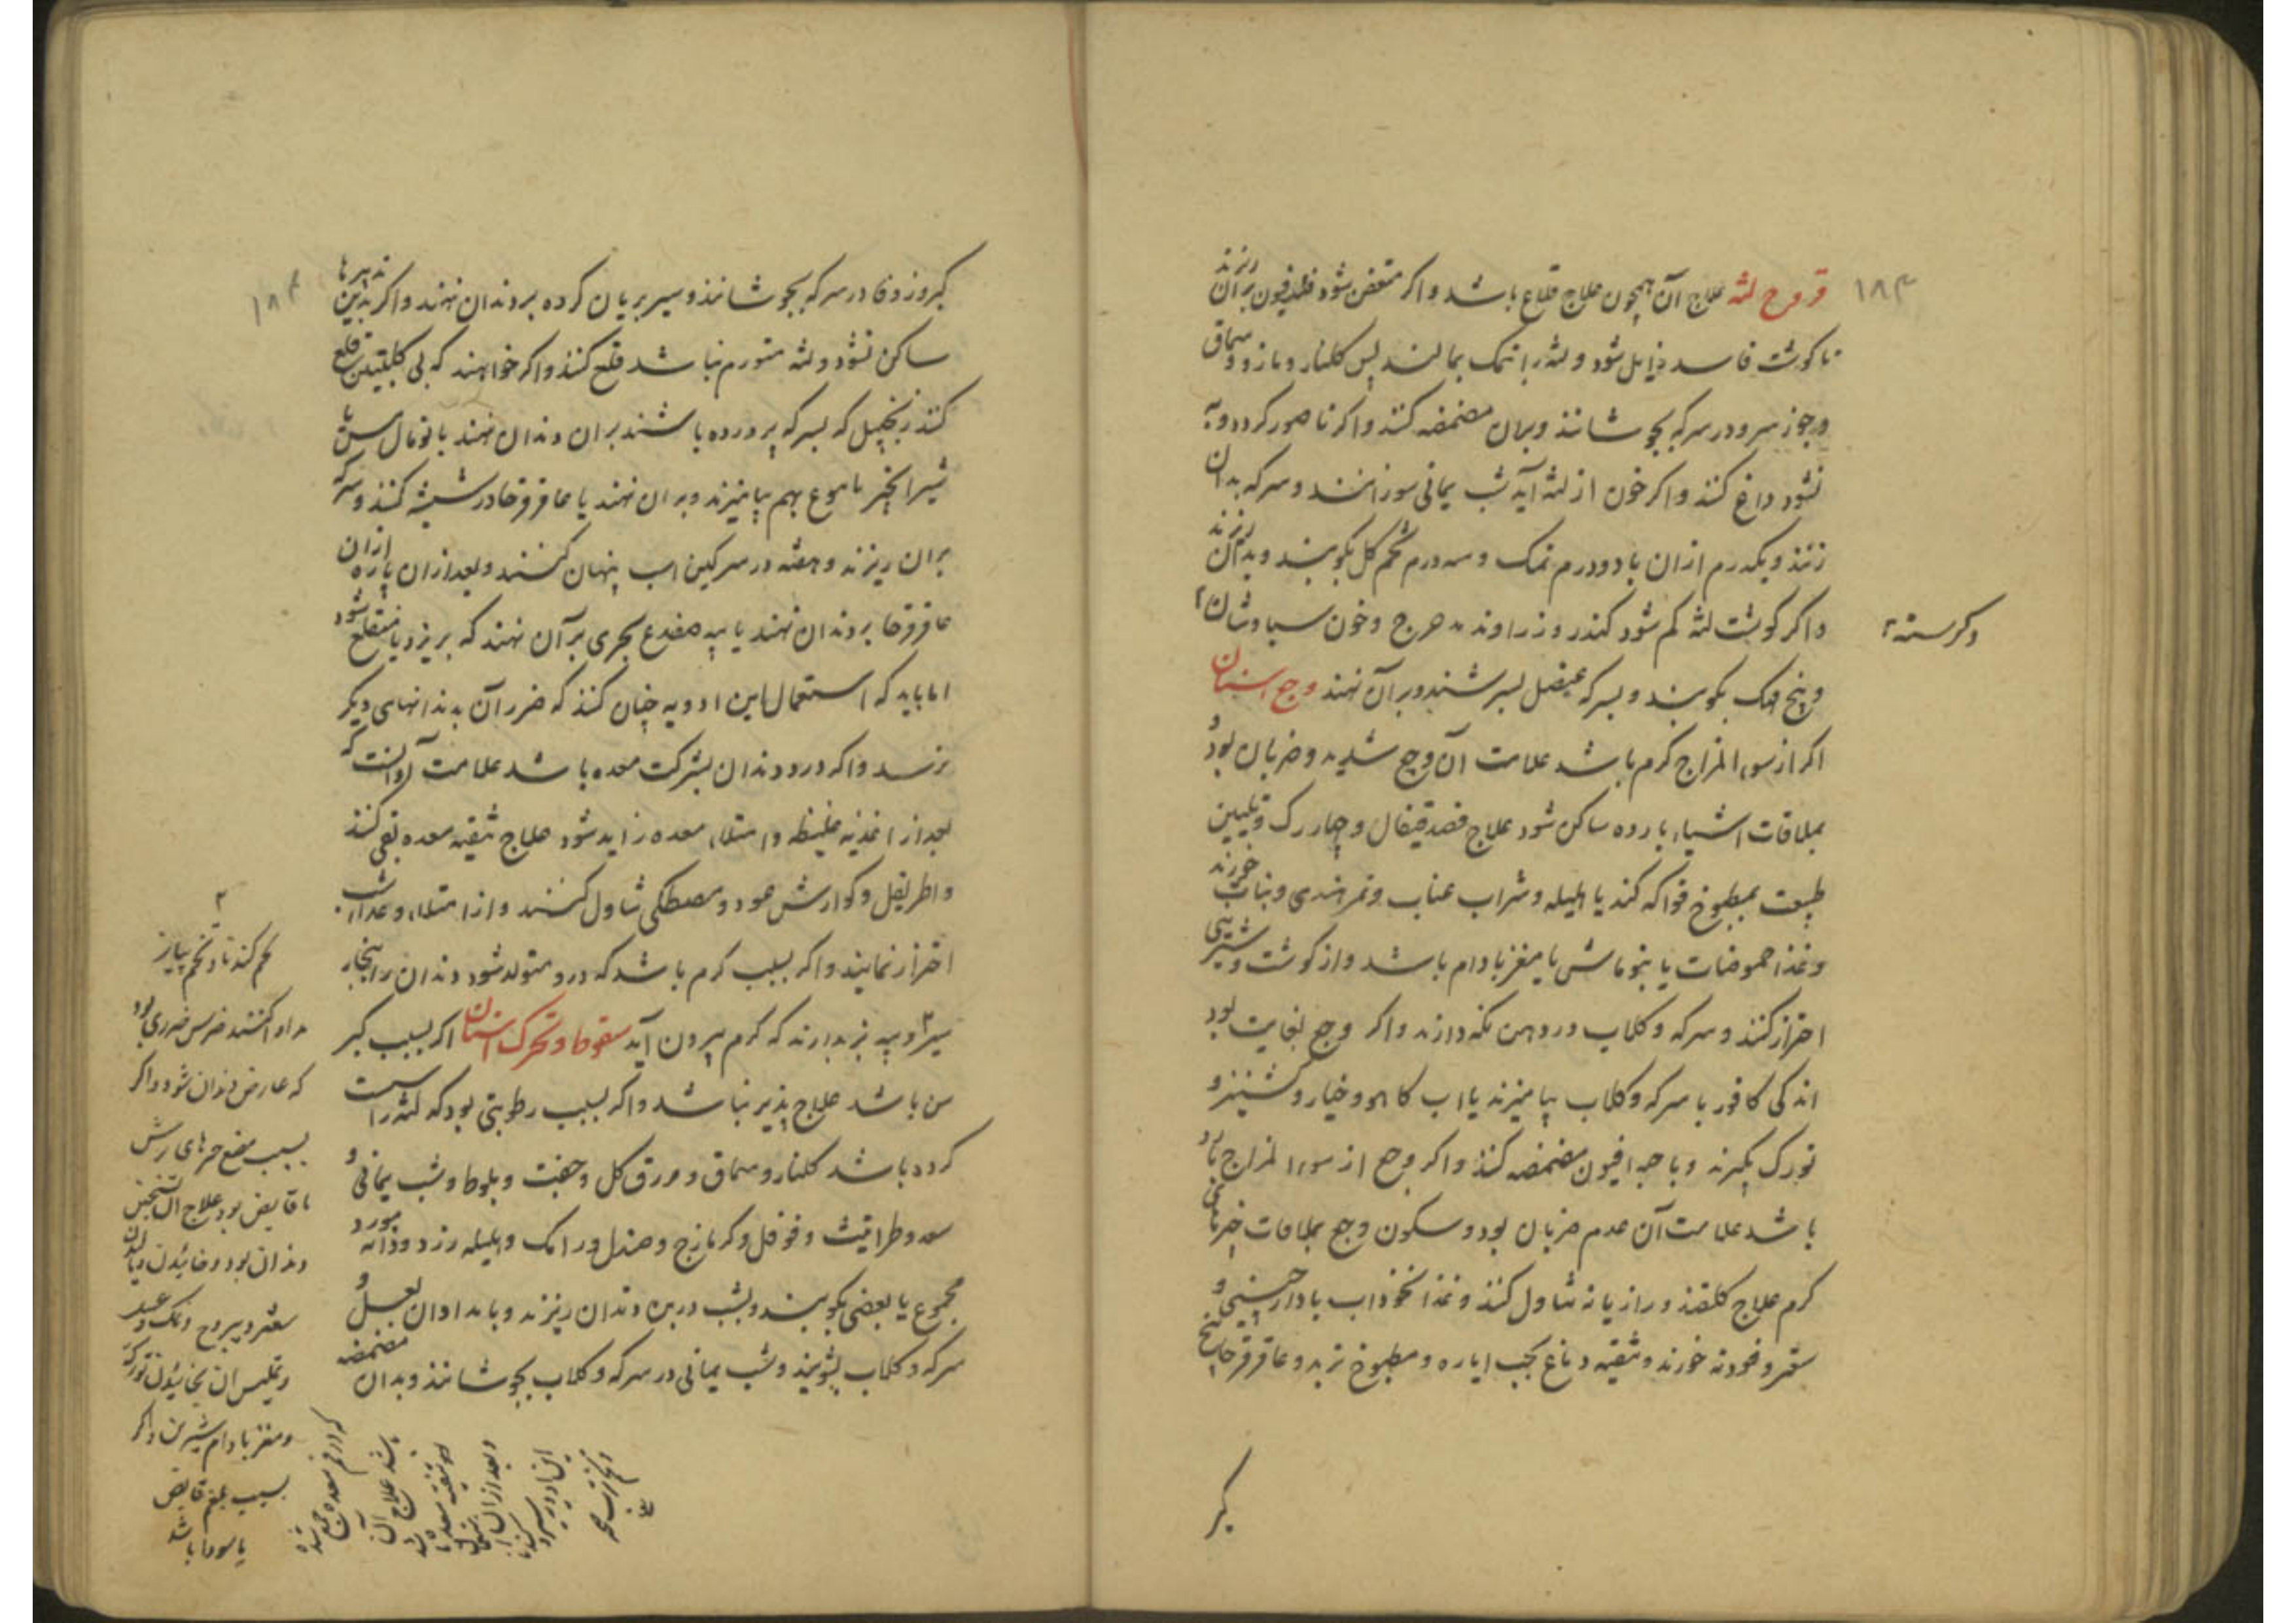 ۱۸۳
قروح لثه علاج آن همچون علاج قلاع باشد و اکر متعفن شود فلدفیون بر آن ریزند
تا کوشت فاسد زایل شود و لثه را نمک بمالند پس کلنار و مازو و سماق
و جوز سرو در سرکه بجوشانند و بدان مضمضه کنند و اکر ناصور کردد و به
نشود داغ کنند و اکر خون از لثه آید شب یمانی سوزانند و سرکه بدان
زنند و یکدرم ازان با دو درم نمک و سه درم تخم کل بکوبند و بدان ریزند
و اکر کوشت لثه کم شود کندر و زراوند مدحرج و خون سیاوشان
و کرسنه
و بیخ بکوبند و بسرکه عنصل بسرشند و بر آن نهند وجع اسنان
اکر از سوء المزاج کرم باشد علامت آن وجع شدید و ضربان بود و
بملاقات اشیاء بارده ساکن شود علاج فصد قیفال و چهار رک و تلیین
طبیعت بمطبوخ فواکه کند یا هلیله و شراب عناب و تمر هندی و نبات خورند
و غذا حموضات یا بنخو ماش با مغز بادام باشد و از کوشت و شیرینی
احتراز کنند و سرکه و کلاب در دهن نکه دارند و اکر وجع بغایت بود
اندکی کافور با سرکه و کلاب بیامیزند یا اب کاهو و خیار و کشنیز و
تورک بگیرند و با حبه افیون مضمضه کنند و اکر وجع از سوء المزاج بارد
باشد علامت آن عدم ضربان بود و سکون وجع بملاقات چیزهای
کرم علاج کلقند و رازیانه تناول کنند و غذا نخوداب با دارچینی و
سعتر و فودنه خورند و تنقیه دماغ بحب ایاره و مطبوخ تربد و عاقرقرحا بیخ
کبر
۱۸۴
کبر و زوفا در سرکه بجوشانند و سیر بریان کرده بر دندان نهند و اکر بدین تدبیرها
ساکن نشود و لثه متورم نباشد قلع کنند و اکر خواهند که بی کلبتین قلع
کنند زنجبیل که بسرکه پرورده باشند بر ان دندان نهند
شیر انجیر با بهم بیامیزند و بر ان نهند یا عاقرقرحا در شیشه کنند و سرکه
بر ان ریزند و هفته در سرکین اسب پنهان کنند و بعد از ان پاره ازان
عاقرقرحا بر دندان نهند یا پیه ضفدع بحری بر آن نهند که بریزد یا منقلع شود
اما باید که استعمال این ادویه چنان کنند که ضرر آن بدندانهای دیکر
نرسد و اکر درد دندان بشرکت معده باشد علامت آن آنست که
بعد از اغذیه غلیظه و امتلاء معده زاید شود علاج تنقیه معده بقی کنند
و اطریفل و کوارش عود و مصطکی تناول کنند و از امتلاء و غذاء شب
احتراز نمایند و اکر بسبب کرم باشد که در و متولد شود دندان را ببخار
سیر و پیه بز بدارند که کرم بیرون آید سقوط و تحرک اسنان اکر بسبب کبر
سن باشد علاج پذیر نباشد و اکر بسبب رطوبتی بود که لثه را سست
کرده باشد کلنار و سماق و ورق کل و جفت و بلوط و شب یمانی و
سعد و طراثیث و فوفل و کزمازج و صندل و رامک و هلیله زرد و دانه مورد
مجموع یا بعضی بکوبند و بشب در بن دندان ریزند و بامدادان بعسل و
سرکه و کلاب بشویند و شب یمانی در سرکه و کلاب بجوشانند و بدان مضمضه
تخم کندنا و تخم پیاز
که عارض دندان شود و اکر
بسبب مضغ چیزهای ترش
یا قابض بود علاج ان تسخین
دندان بود و خائیدن
و مغز بادام شیرین و اکر
بسبب بلغم قابض
یا سودا باشد
که در فم معده جمع شده
باشد علاج آن
تنقیه معده
و بعد از ان
این ادویه